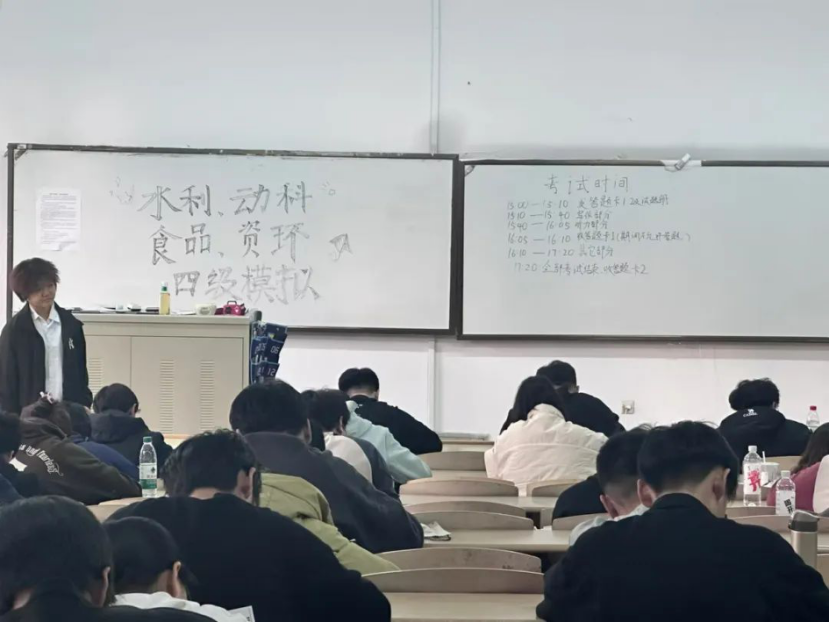 水利、动科
食品、资环
四级模拟
考试时间
15:00—15:10 发答题卡1及试题册
15:10—15:40 写作部分
15:40—16:05 听力部分
16:05—16:10 收答题卡1(期间
16:10—17:20 其它部分
17:20 全部考试结束,收答题卡2